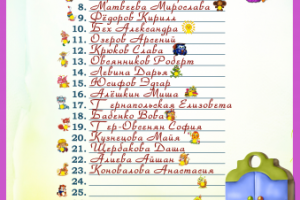 8. Матвеева Мирослава
9. Фёдоров Кирилл
10. Бех Александра
11. Озеров Арсений
12. Крюков Слава
13. Овсянников Роберт
14. Левина Дарья
15. Юсифов Эдгар
16. Алёшкин Миша
17. Тернапольская Елизовета
18. Бабенко Вова
19. Тер-Овсенян София
20. Кузнецова Майя
21. Щербакова Даша
22. Алиева Айшан
23. Коновалова Анастасия
24.
25.